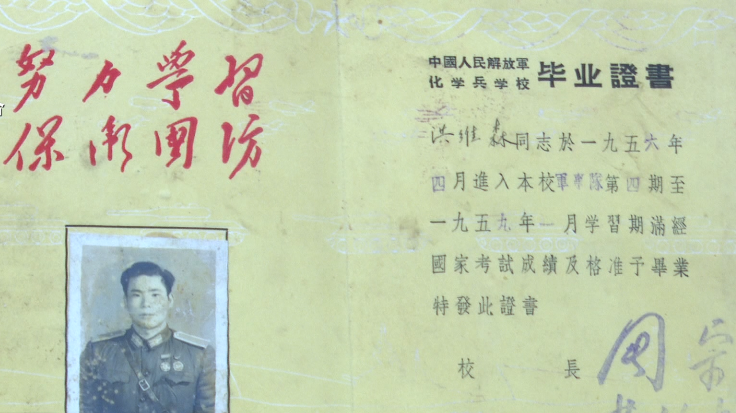 努力學習
保衛國防
中國人民解放軍
化学兵学校 毕业證書
洪维森同志於一九五六年
四月進入本校軍事隊第四期至
一九五九年一月学習期滿經
國家考試成績及格准予畢業
特發此證書
校長 周